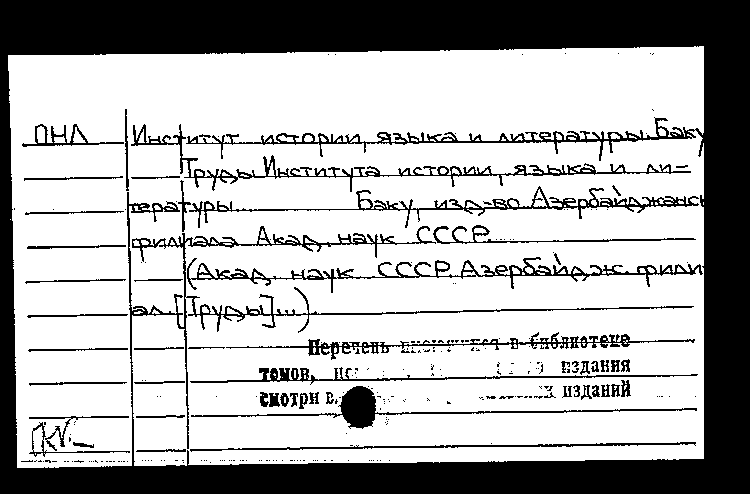 ПНЛ Институт истории, языка и литературы. Баку
Труды Института истории, языка и ли-
тературы... Баку, изд-во Азербайджанс
филиала Акад. наук СССР.
(Акад. наук СССР. Азербайдж. фили
ал. [Труды]...).
Перечень в библиотеке
томов, издания
смотри в изданий